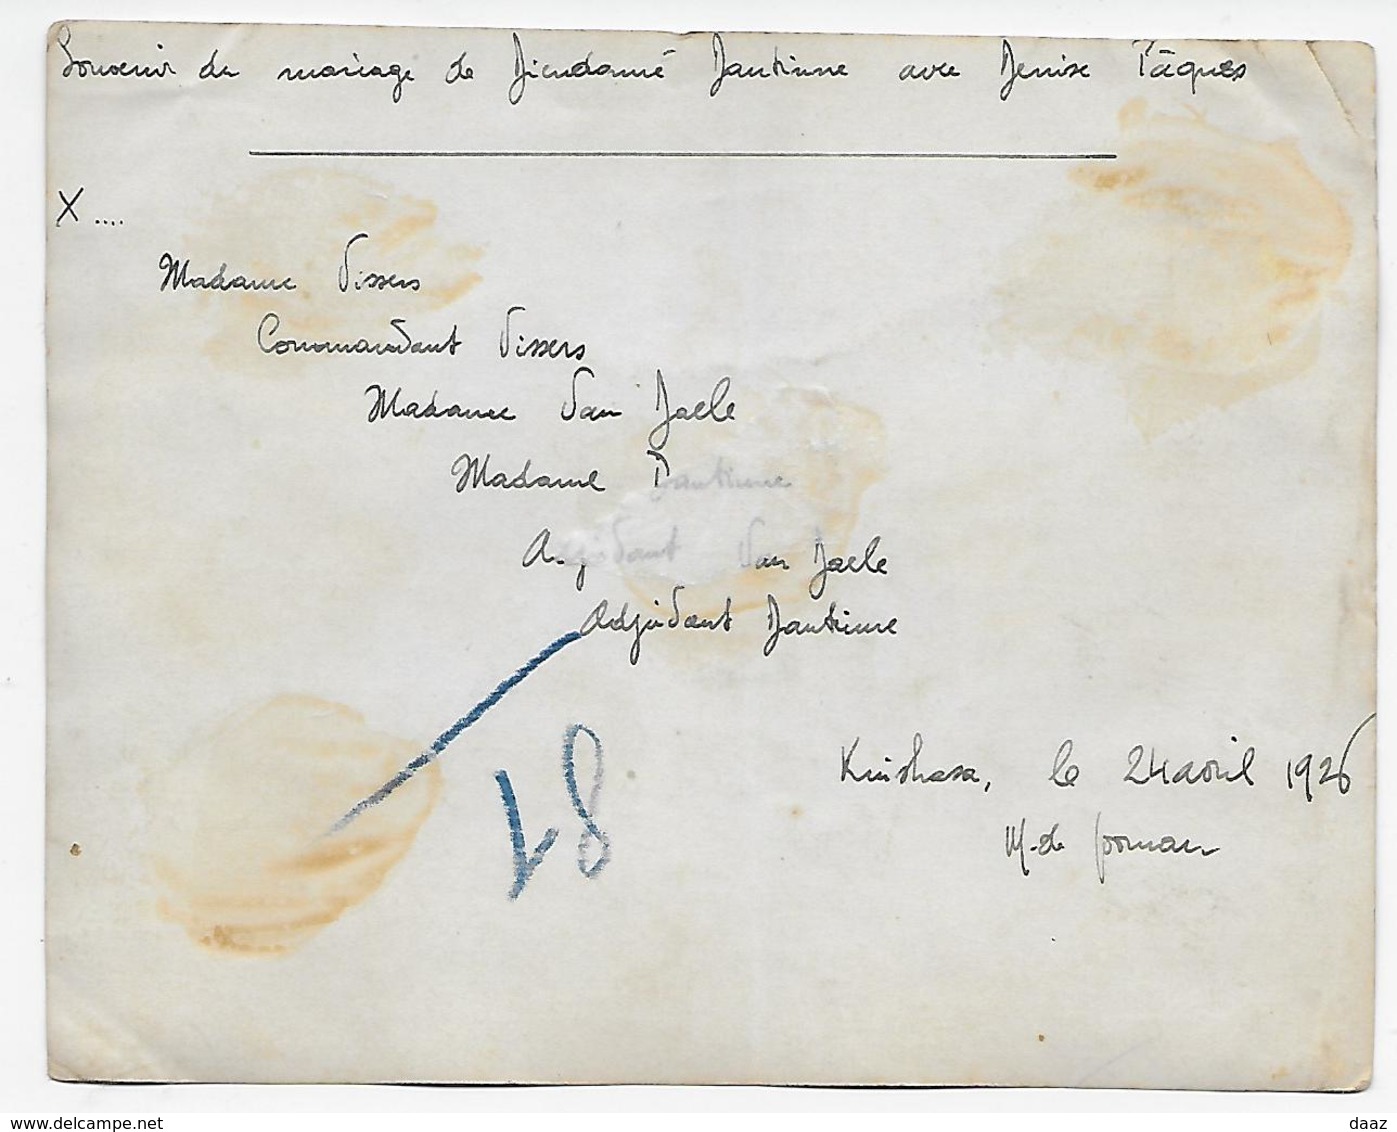 Souvenir du mariage de Dieudonné Dautinne avec Denise Pâques
X ....
Madame Vissers
Commandant Vissers
Madame Van Daele
Madame Dautinne
Adjudant Van Daele
Adjudant Dautinne
Kinshasa, le 24 avril 1926
M. de
18
www.delcampe.net
daaz